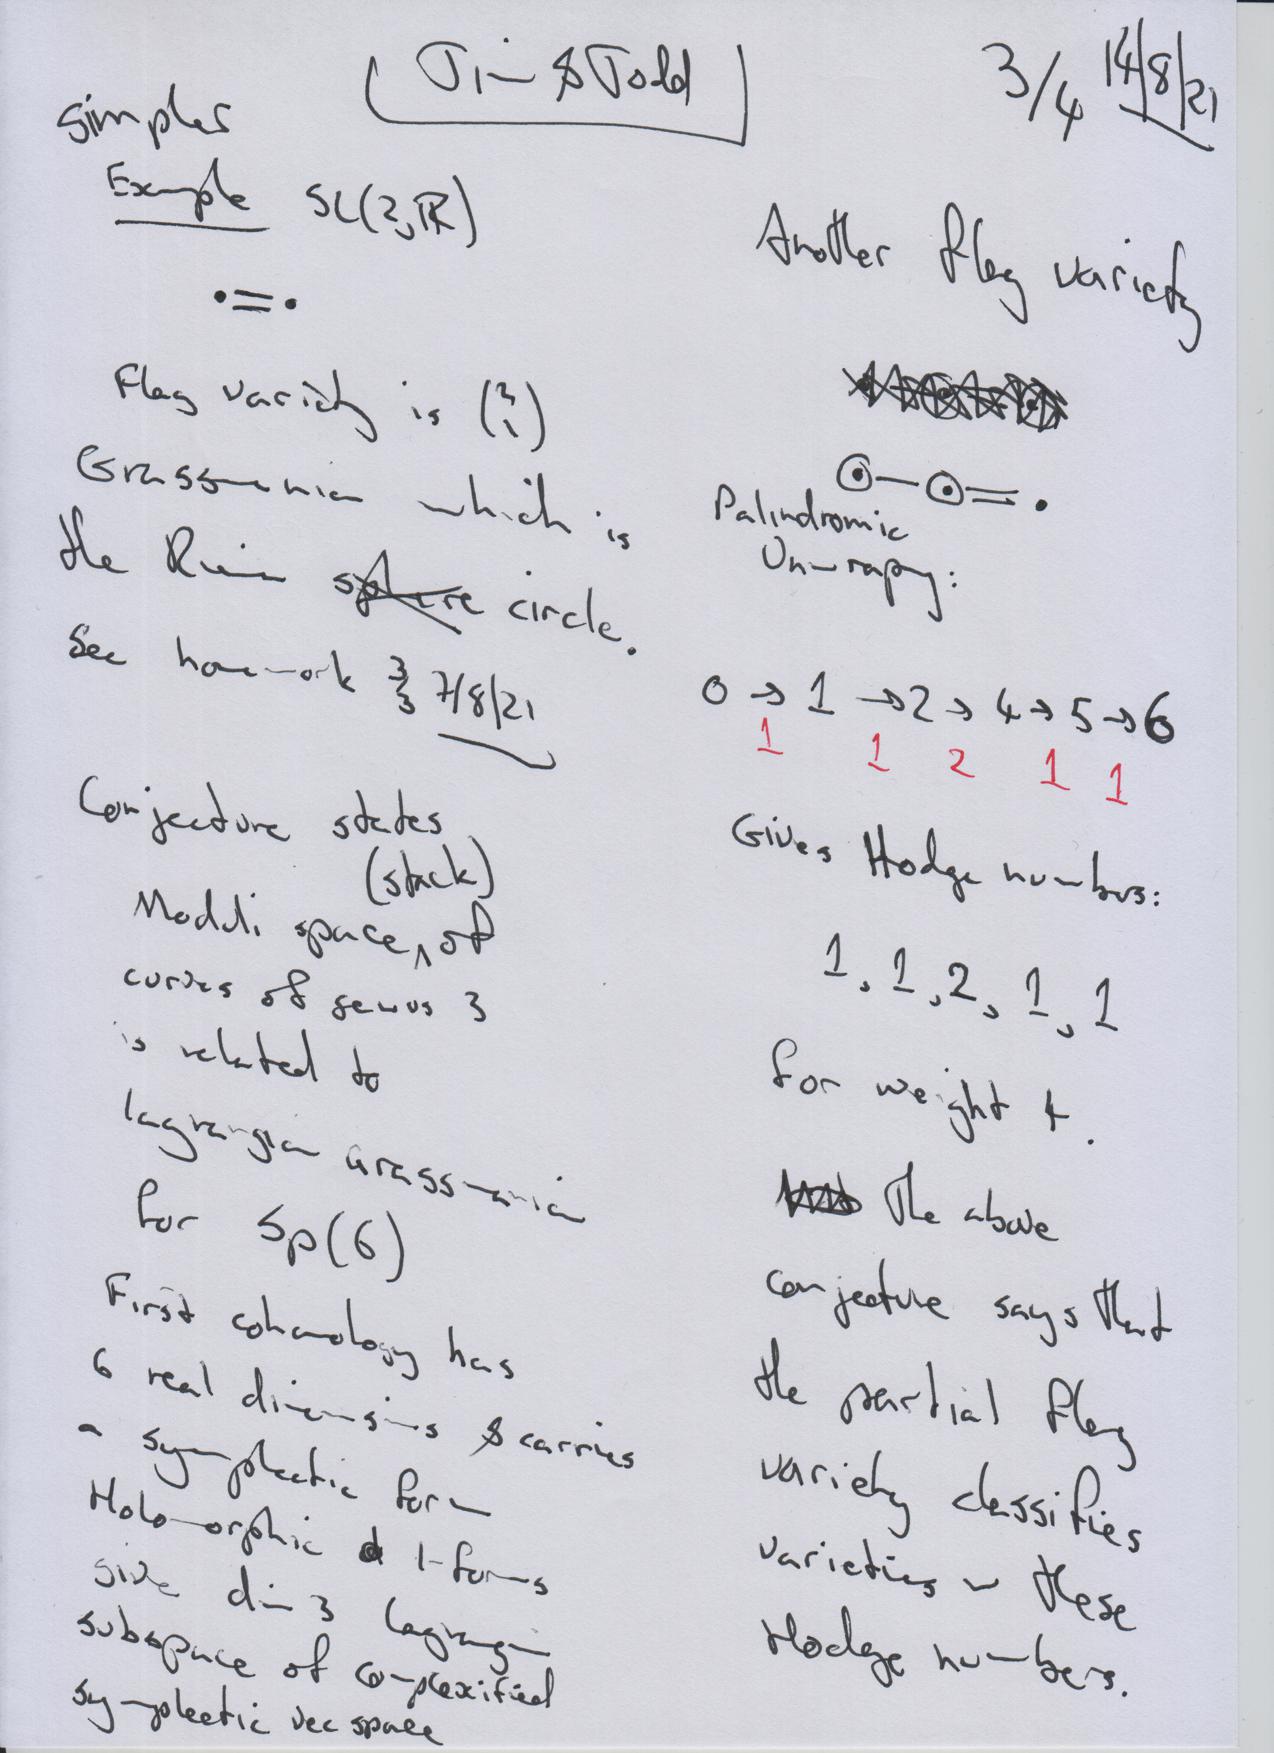 Jim & Todd
3/4 14/8/21
simpler
Example SL(2,ℝ)
•=•
Flag variety is (2 1)
Grassmannian which is
the Riemann sphere circle.
See homework 3/3 7/8/21
Conjecture states
(stack)
Moduli space ^ of
curves of genus 3
is related to
lagrangian Grassmannian
for Sp(6)
First cohomology has
6 real dimensions & carries
a symplectic form
Holomorphic 1-forms
give dim 3 lagrangian
subspace of complexified
symplectic vec space
Another flag variety
⊙—⊙=•
Palindromic
Unwrapy:
0 → 1 → 2 → 4 → 5 → 6
1 1 2 1 1
Gives Hodge numbers:
1, 1, 2, 1, 1
for weight 4.
The above
conjecture says that
the partial flag
variety classifies
varieties w these
Hodge numbers.